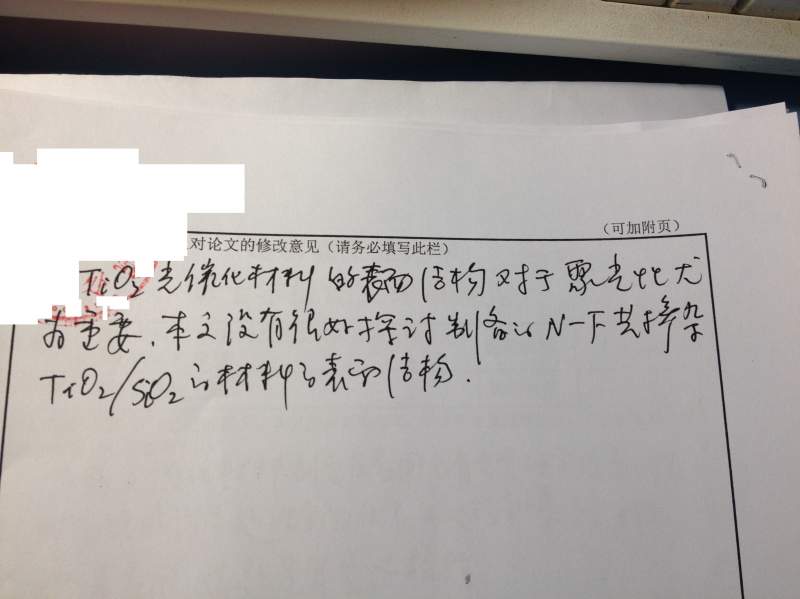 (可加附页)
对论文的修改意见(请务必填写此栏)
TiO2光催化材料的表面结构对于其光性尤
为重要,本文没有很好探讨制备的N-F共掺杂
TiO2/SiO2的材料的表面结构.